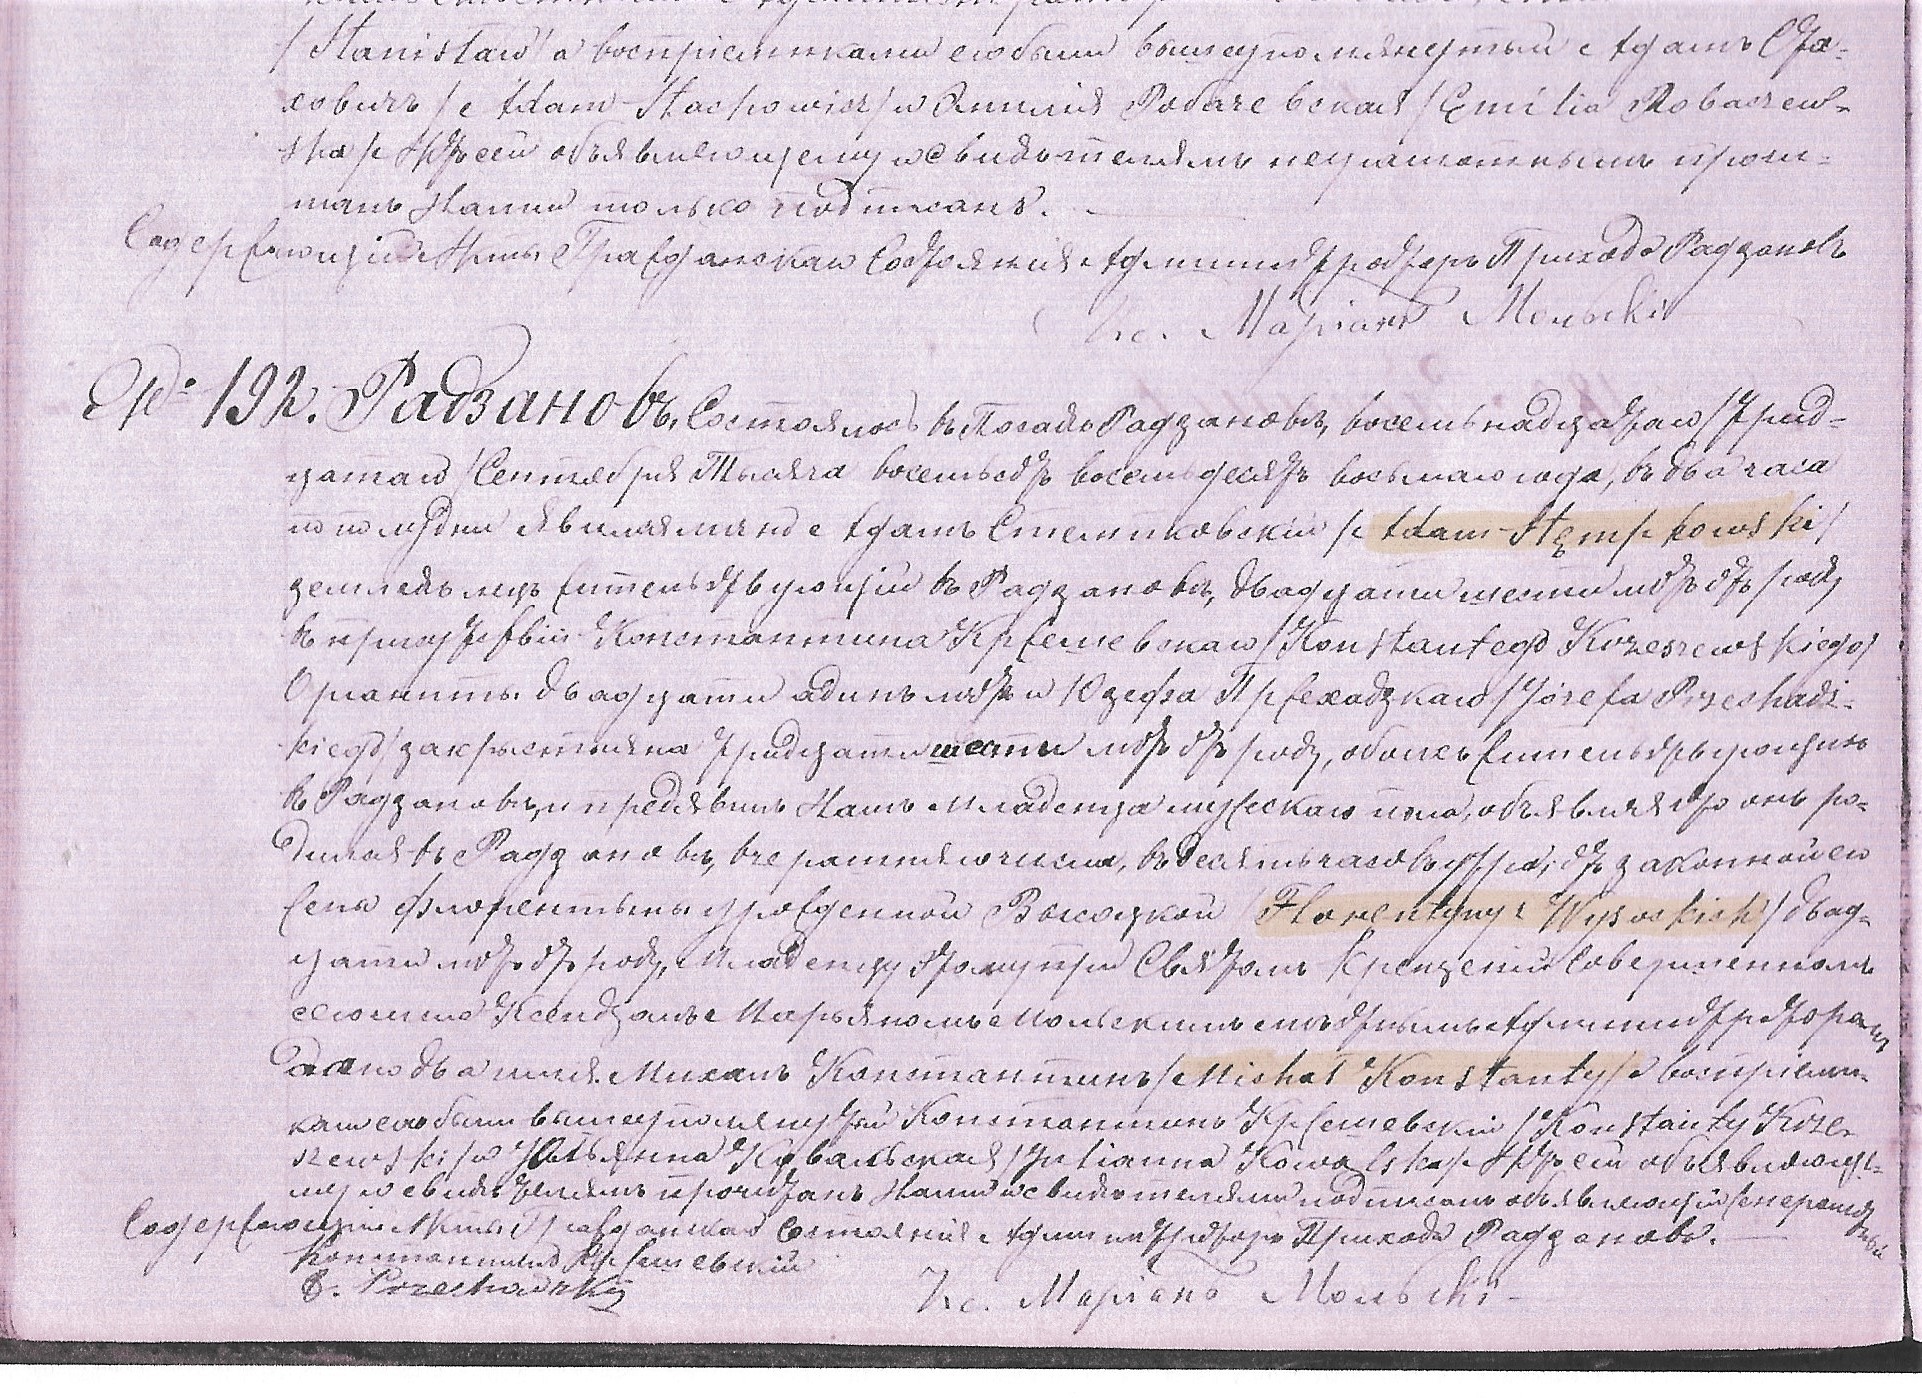 /Stanisław/ а воспріемниками его были вышеупомянутый Адамъ Ста-
ховичъ /Adam Stachowicz/ и Эмилія Робачевская /Emilia Robaczew-
ska/. Актъ сей объявляющему и свидѣтелямъ неграмотнымъ прочи-
танъ Нами только подписанъ.
Содержающій Акты Гражданскаго Состоянія Администраторъ Прихода Радзановъ
Кс. Маріанъ Мольскі
№ 192. Радзановъ. Состоялось въ Посадѣ Радзановѣ, восемьнадцатаго /трид-
цатаго/ Сентября Тысяча восемьсотъ восемьдесятъ восьмаго года, въ два часа
по полудни явился лично Адамъ Стемпковскій /Adam Stępkowski/
земледѣлецъ жительствующій въ Радзановѣ, двадцати шести лѣтъ отъ роду,
въ присутствіи Константина Кржешевскаго /Konstantego Krzeszewskiego/
Органиты двадцати одинъ лѣтъ и Юзефа Пржеходзкаго /Józefa Przechodz-
kiego/ закрыстіяна тридцати шести лѣтъ отъ роду, обоихъ жительствующихъ
въ Радзановѣ, и предъявилъ Намъ младенца мужескаго пола, объявляя что онъ ро-
дился въ Радзановѣ, вчерашняго числа, въ десять часовъ утра, отъ законной его
жены Флорентыны урожденной Высоцкой /Florentyny z Wysockich/ двад-
цати лѣтъ отъ роду, Младенцу этому при Святомъ Крещеніи совершенномъ
сего числа Ксендзомъ Марьяномъ Мольскимъ мѣстнымъ Администраторомъ
дано два имя Михалъ Константынъ /Michał Konstanty/ а воспріемни-
ками его были вышеупомянутый Константинъ Кржешевскій /Konstanty Krze-
szewski/ и Юльянна Ковальская /Julianna Kowalska/. Актъ сей объявляюще-
му и свидѣтелямъ прочитанъ Нами и свидѣтелями подписанъ объявляющій неграмотный
Содержающій Акты Гражданскаго Состоянія Администраторъ Прихода Радзановъ.
Константинъ Кржешевскій
Кс. Маріанъ Мольскі